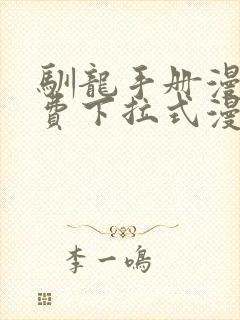 馴龍手册漫
費下拉式漫
李一鳴